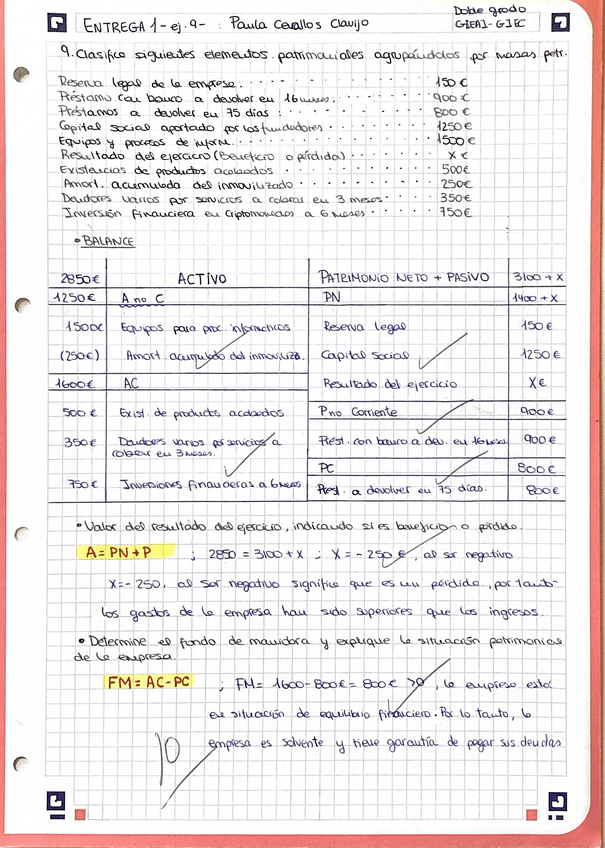 ENTREGA 1 - ej. 9 - : Paula Cevallos Clavijo
Doble grado
GIEAI - GIEC
9. Clasifica siguientes elementos patrimoniales agrupándolos por masas patr.
Reserva legal de la empresa: 150 €
Préstamo con banco a devolver en 16 meses: 900 €
Préstamos a devolver en 75 días: 800 €
Capital social aportado por los fundadores 1250 €
Equipos y procesos de inform. 1500 €
Resultado del ejercicio (Beneficio o pérdida) X €
Existencias de productos acabados 500 €
Amort. acumulada del inmovilizado 250 €
Deudores varios por servicios a cobrar en 3 meses 350 €
Inversión financiera en criptomonedas a 6 meses 750 €
• BALANCE
2850 € ACTIVO PATRIMONIO NETO + PASIVO 3100 + X
1250 € A no C PN 1400 + X
1500€ Equipos para proc. informáticos Reserva legal 150 €
(250€) Amort. acumulado del inmoviliza. Capital social 1250 €
1600€ AC Resultado del ejercicio X€
500 € Exist. de productos acabados P no Corriente 900 €
350€ Deudores varios por servicios a
cobrar en 3 meses. Prést. con banco a dev. en 16 meses 900 €
PC 800 €
750 € Inversiones financieras a 6 meses Prést. a devolver en 75 días. 800 €
• Valor del resultado del ejercicio, indicando si es beneficio o pérdida.
A = PN + P ; 2850 = 3100 + X ; X = - 250 €, al ser negativo
X = - 250, al ser negativo significa que es un pérdida, por tanto
los gastos de la empresa han sido superiores que los ingresos.
• Determine el fondo de maniobra y explique la situación patrimonial
de la empresa.
FM = AC - PC ; FM = 1600 - 800€ = 800 € > 0, la empresa está
en situación de equilibrio financiero. Por lo tanto, la
empresa es solvente y tiene garantía de pagar sus deudas
10